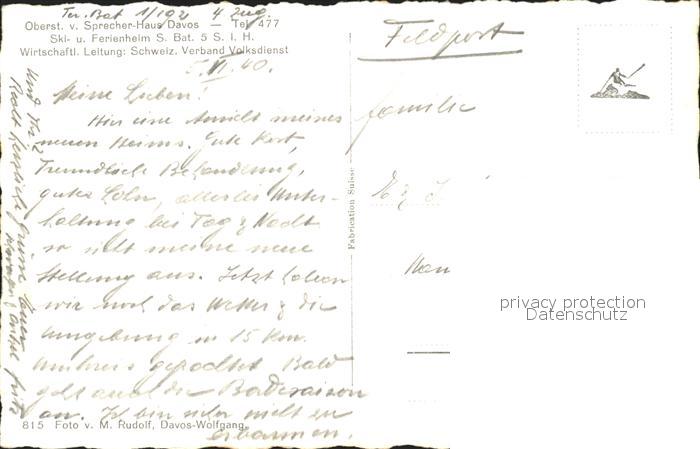 Ter. Bat 1/191 4 Zug.
Oberst. v. Sprecher-Haus Davos — Tel. 477
Ski- u. Ferienheim S. Bat. 5 S. I. H.
Wirtschaftl. Leitung: Schweiz. Verband Volksdienst
5. VI. 40.
Meine Lieben!
Hier eine Ansicht meines
neuen Heims. Gute Kost,
freundliche Behandlung,
guter Lohn, allerlei Unter-
haltung bei Tag & Nacht
so sieht meine neue
Stellung aus. Jetzt haben
wir noch das Wetter & die
Umgebung in 15 Km.
Umkreis gepachtet. Bald
geht auch die Badesaison
an. Ich bin sicher nicht zu
erbarmen.
Recht herzliche Grüsse Euer
815 Foto v. M. Rudolf, Davos-Wolfgang.
Fabrication Suisse
Feldpost
Familie
privacy protection
Datenschutz